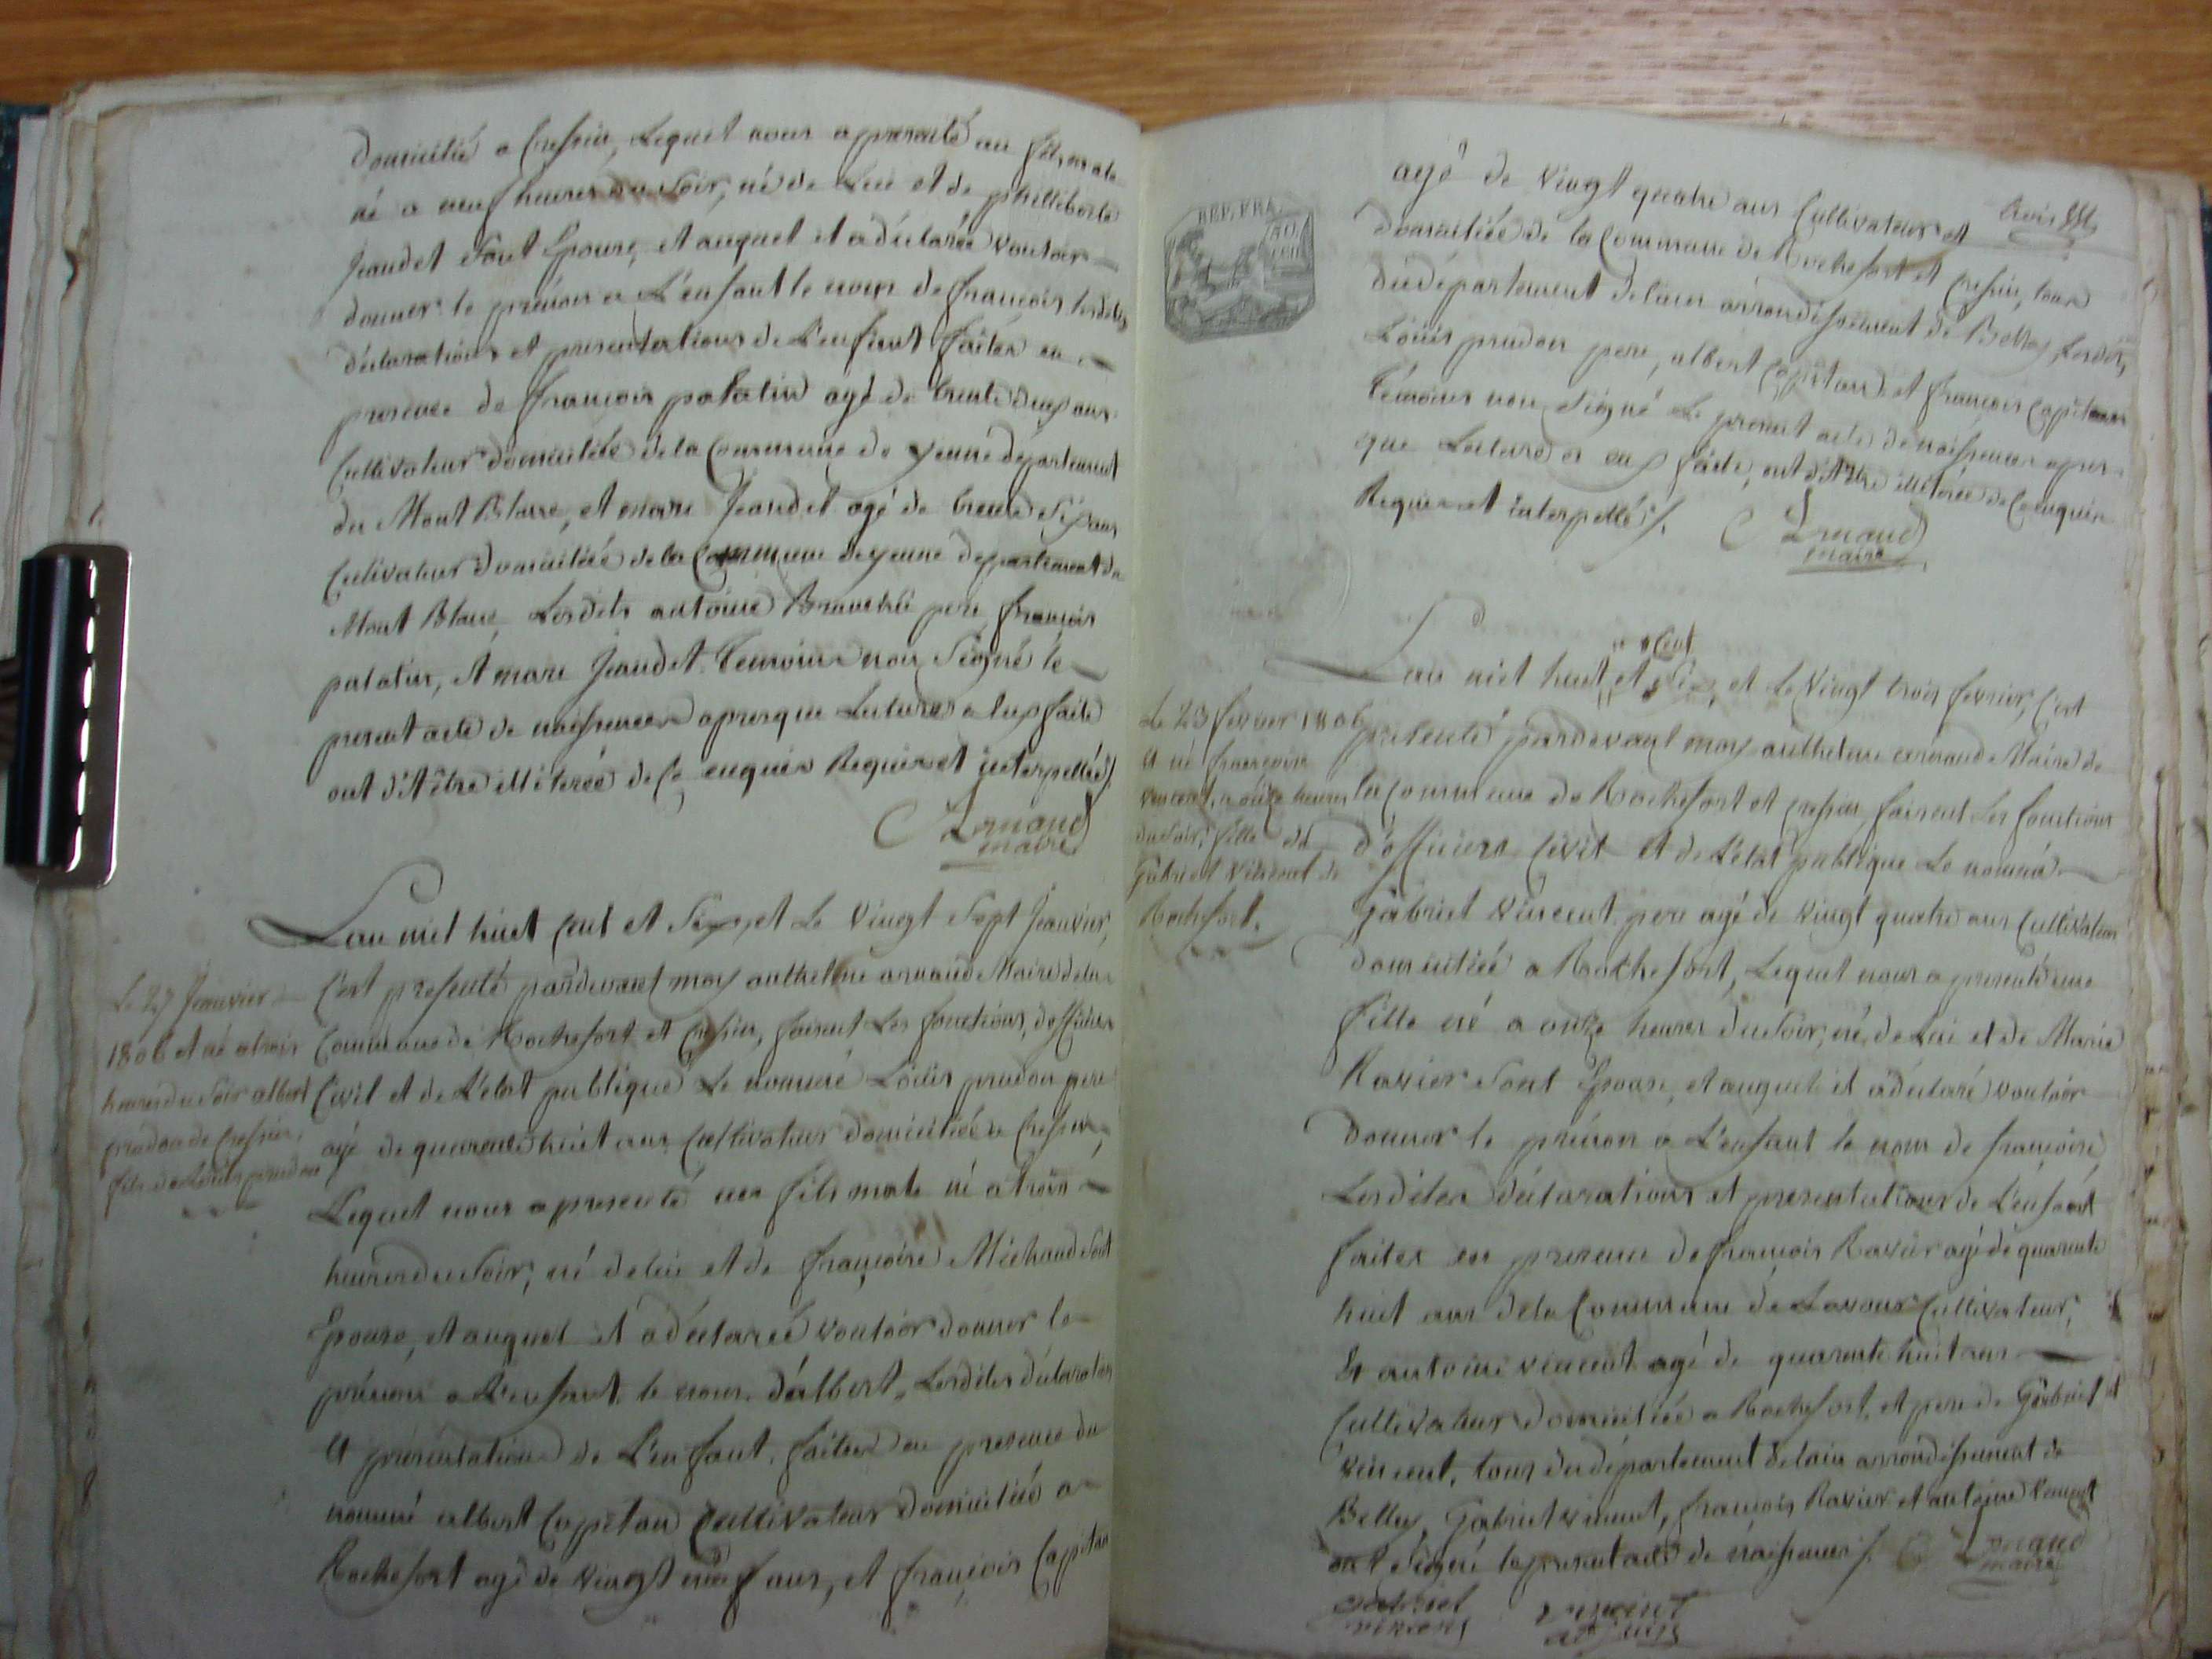 domicilié a Cressin, Lequel nous a presenté un fils male
né a neuf heures du Soir, né de Lui et de philliberte
Jeandet Sont Epouse, et auquel il a déclarée vouloir
donner le prénom a L'enfant le nom de françois, lesdites
déclarations et presentations de L'enfant faites en
presence de françois palatin agé de trente deux ans
Cultivateur domiciliée de la Commune de yenne département
du Mont Blanc, et marie Jeandet agé de trente Six ans
Cultivateur domiciliée de la Commune de yenne departement du
Mont Blanc, Lesdits antoine père, françois
palatin, et marie Jeandet Temoins non Signé le
present acte de naissances apresque Lectures a eux faite
ont dit être illiterée de Ce enquis Requis et interpellés /.
Arnaud
maire
Lan mil huit Cent et Six, et Le Vingt Sept Janvier,
C'est presenté pardevant moy anthelme arnaud Maire de la
Commune de Rochefort et Cressin, faisent Les fonctions, d'officier
Civil et de L'état publique Le nommé Loüis prudon père
agé de quarante huit ans Cultivateur domiciliée a Cressin,
Lequel nous a presenté un fils male né a trois
heures du Soir, né de lui et de françoise Michaud Sont
Epouse, et auquel il a déclarée vouloir donner le
prénom a L'enfant le nom d'albert, Lesdites déclaration
et presentation de L'enfant faites en presence du
nommé albert Capitan Cultivateur domicilié a
Rochefort agé de Vingt neuf ans, et françois Capitan
Le 27 Janvier
1806 et né a trois
heures du Soir albert
prudon de Cressin,
fils de Loüis prudon
REP. FRA.
trois
agé de Vingt quatre ans Cultivateur et
domiciliée de la Commune de Rochefort et Cressin, tous
du département de lain arrondissement de Belley, Lesdits,
Loüis prudon pere, albert Capitan et françois Capitan
Témoins non Signé Le present acte de naissances apres
que Lectures a eux faite, ont dit être illiterée de Ce enquis
Requis et interpellés /.
Arnaud
maire
Cent
Lan mil huit et Six, et Le Vingt trois fevrier, C'est
presenté pardevant moy anthelme arnaud Maire de
la Commune de Rochefort et Cressin, faisent Les fonctions
d'officiers Civil et de L'état publique Le nommé
Gabriel Vincent pere agé de Vingt quatre ans Cultivateur
domiciliée a Rochefort, Lequel nous a presenté une
fille né a onze heures du Soir, né de Lui et de Marie
Ravier Sont Epouse, et auquel il a déclaré vouloir
Donner le prénom a L'enfant le nom de françoise,
Lesdites déclarations et presentations de L'enfant
faites en presence de françois Ravier agé de quarante
huit ans de la Commune de Lavour Cultivateur,
Et antoine vincent agé de quarante huit ans
Cultivateur domiciliée a Rochefort, et pere de Gabriel
Vincent, tous du département de lain arrondissement de
Belley, Gabriel vincent, françois Ravier et antoine Vincent
ont Signé le present acte de naissances /. Arnaud
maire
gabriel vincent
Le 23 fevrier 1806
et né françoise
vincent, a onze heures
du Soir, fille de
Gabriel Vincent de
Rochefort.